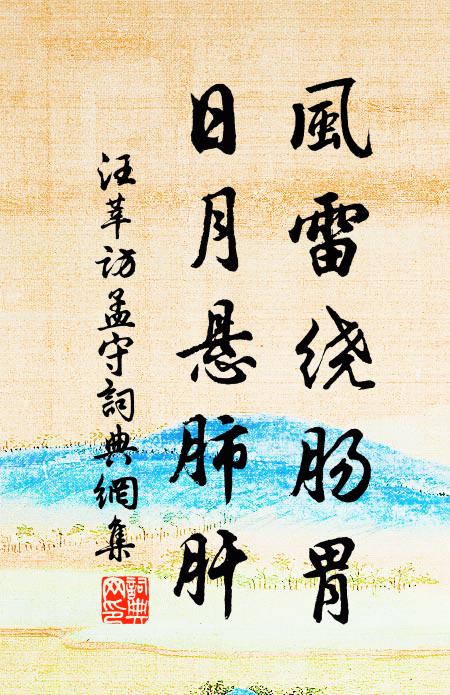 風雷绕肠胃
日月悬肺肝
汪莘访孟守詞典網集